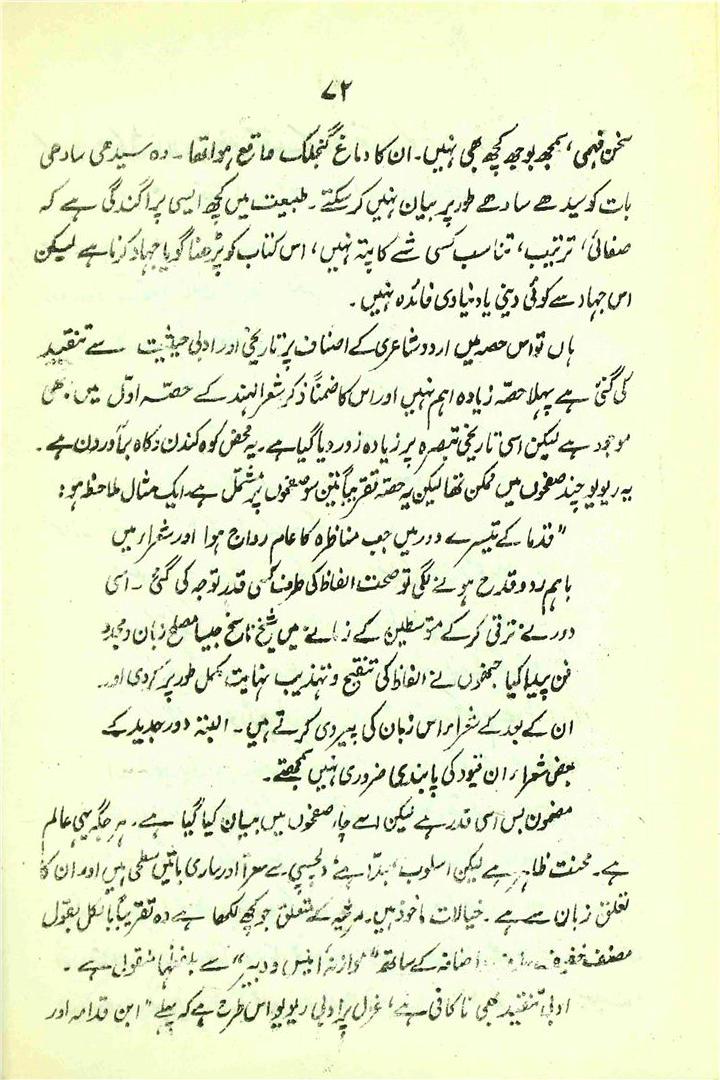 ۷۲
سخن فہمی، سمجھ بوجھ کچھ بھی نہیں۔ ان کا دماغ گنجلک واقع ہوا تھا۔ وہ سیدھی سادھی
بات کو سیدھے سادھے طور پر بیان نہیں کر سکتے۔ طبیعت میں کچھ ایسی پراگندگی ہے کہ
صفائی، ترتیب، تناسب کسی شے کا پتہ نہیں، اس کتاب کو پڑھنا گویا جہاد کرنا ہے لیکن
اس جہاد سے کوئی دینی یا دنیاوی فائدہ نہیں۔
ہاں تو اس حصہ میں اردو شاعری کے اصناف پر تاریخی اور ادبی حیثیت سے تنقید
کی گئی ہے پہلا حصّہ زیادہ اہم نہیں اور اس کا ضمناً ذکر شعر الہند کے حصّہ اوّل میں بھی
موجود ہے لیکن اسی تاریخی تبصرہ پر زیادہ زور دیا گیا ہے۔ یہ محض کوہ کندن و کاہ برآوردن ہے۔
یہ ریویو چند صفحوں میں ممکن تھا لیکن یہ حصّہ تقریباً تین سو صفحوں پر مشتمل ہے۔ ایک مثال ملاحظہ ہو:
"قدما کے تیسرے دور میں جب مناظرہ کا عام رواج ہوا اور شعرار میں
باہم رد و قدرح ہونے لگی تو صحت الفاظ کی طرف کسی قدر توجہ کی گئی۔ اسی
دور نے ترقی کرکے متوسطین کے زمانے میں شیخ ناسخ جیسا مصلح زبان و مجدد
فن پیدا کیا جنھوں نے الفاظ کی تنقیح و تہذیب نہایت مکمل طور پر کر دی اور
ان کے بعد کے شعراء اس زبان کی پیروی کرتے ہیں۔ البتہ دور جدید کے
بعض شعراء ان قیود کی پابندی ضروری نہیں سمجھتے۔
مضمون بس اسی قدر ہے لیکن اسے چار صفحوں میں بیان کیا گیا ہے۔ ہر جگہ یہی عالم
ہے۔ محنت ظاہر ہے لیکن اسلوب بھدّا ہے، دلچسپی سے معرّا اور ساری باتیں سطحی ہیں اور ان کا
تعلق زبان سے ہے۔ خیالات ماخوذ ہیں۔ مرثیہ کے متعلق جو کچھ لکھا ہے وہ تقریباً بالکل بقول
مصنف خفیف اضافہ کے ساتھ "موازنہ انیس و دبیر" سے بلفظہا منقول ہے۔
ادبی تنقید بھی ناکافی ہے، غزل پر ادبی ریویو اس طرح ہے کہ پہلے "ابن قدامہ اور